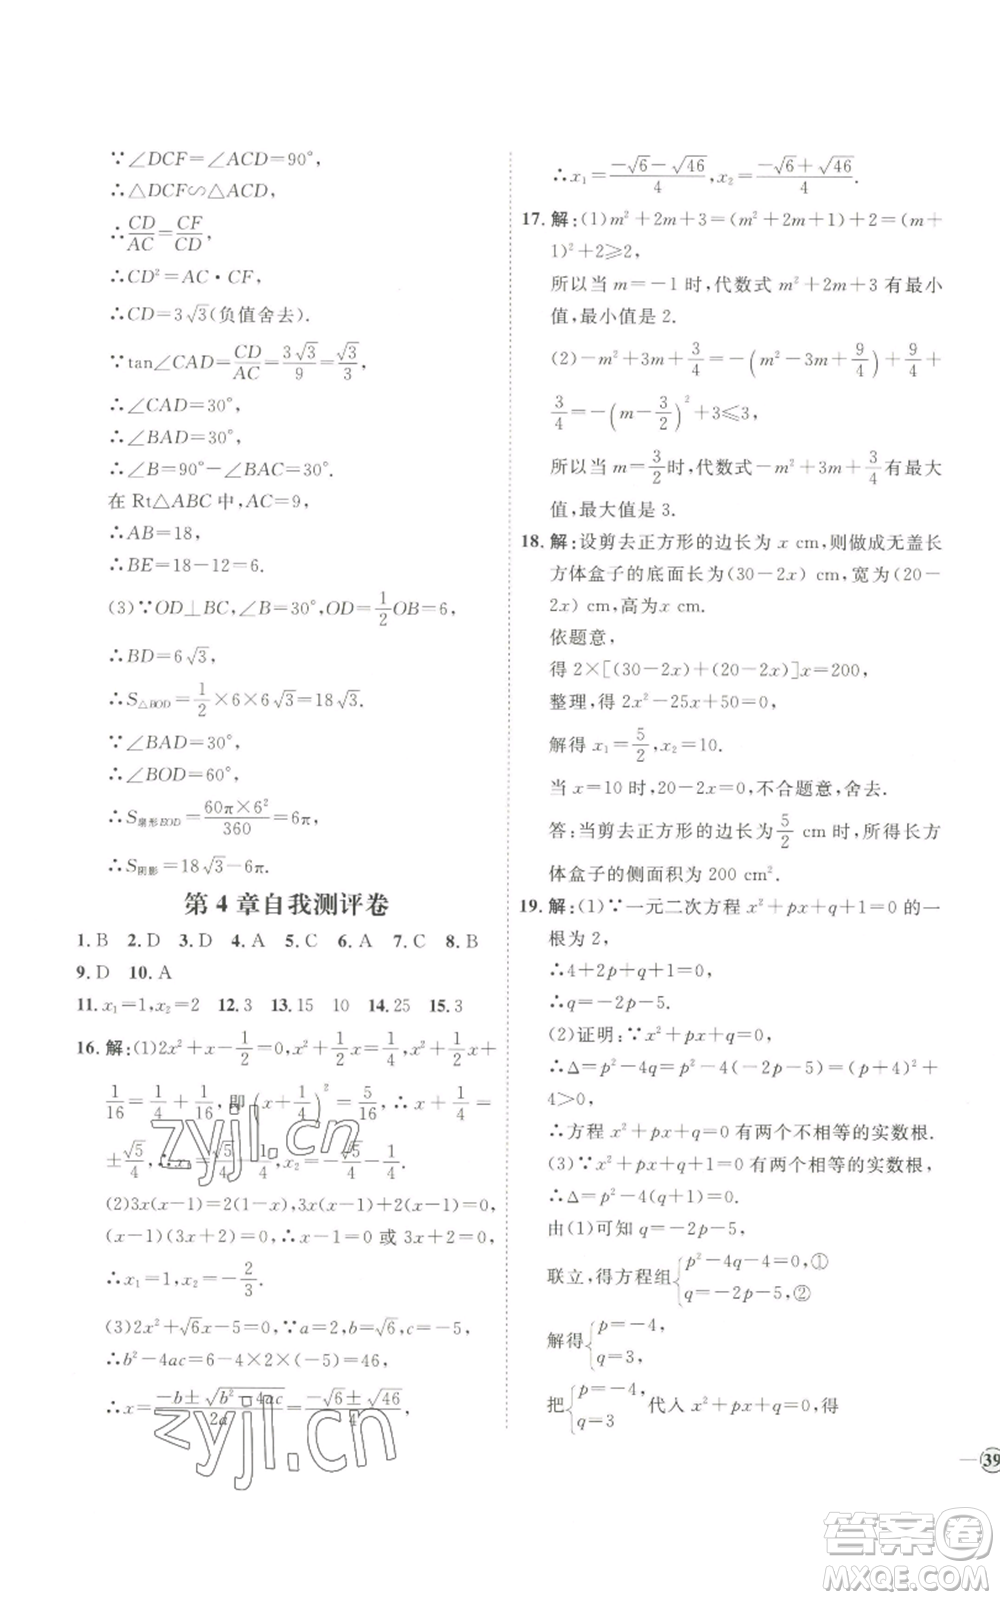 ∵∠DCF=∠ACD=90°,
∴△DCF∽△ACD,
∴CD/AC=CF/CD,
∴CD²=AC·CF,
∴CD=3√3(负值舍去).
∵tan∠CAD=CD/AC=3√3/9=√3/3,
∴∠CAD=30°,
∴∠BAD=30°,
∴∠B=90°-∠BAC=30°.
在 Rt△ABC 中,AC=9,
∴AB=18,
∴BE=18-12=6.
(3)∵OD⊥BC,∠B=30°,OD=1/2OB=6,
∴BD=6√3,
∴S△BOD=1/2×6×6√3=18√3.
∵∠BAD=30°,
∴∠BOD=60°,
∴S扇形EOD=60π×6²/360=6π,
∴S阴影=18√3-6π.
第 4 章自我测评卷
1.B 2.D 3.D 4.A 5.C 6.A 7.C 8.B
9.D 10.A
11.x₁=1,x₂=2 12.3 13.15 10 14.25 15.3
16.解:(1)2x²+x-1/2=0,x²+1/2x=1/4,x²+1/2x+
1/16=1/4+1/16,即(x+1/4)²=5/16,∴x+1/4=
±√5/4,∴x₁=√5/4-1/4,x₂=-√5/4-1/4.
(2)3x(x-1)=2(1-x),3x(x-1)+2(x-1)=0,
(x-1)(3x+2)=0,∴x-1=0 或 3x+2=0,
∴x₁=1,x₂=-2/3.
(3)2x²+√6x-5=0,∵a=2,b=√6,c=-5,
∴b²-4ac=6-4×2×(-5)=46,
∴x=(-b±√(b²-4ac))/2a=(-√6±√46)/4,
∴x₁=(-√6-√46)/4,x₂=(-√6+√46)/4.
17.解:(1)m²+2m+3=(m²+2m+1)+2=(m+
1)²+2⩾2,
所以当 m=-1 时,代数式 m²+2m+3 有最小
值,最小值是 2.
(2)-m²+3m+3/4=-(m²-3m+9/4)+9/4+
3/4=-(m-3/2)²+3⩽3,
所以当 m=3/2时,代数式-m²+3m+3/4有最大
值,最大值是 3.
18.解:设剪去正方形的边长为 x cm,则做成无盖长
方体盒子的底面长为(30-2x) cm,宽为(20-
2x) cm,高为x cm.
依题意,
得 2×[(30-2x)+(20-2x)]x=200,
整理,得 2x²-25x+50=0,
解得 x₁=5/2,x₂=10.
当 x=10 时,20-2x=0,不合题意,舍去.
答:当剪去正方形的边长为5/2 cm 时,所得长方
体盒子的侧面积为 200 cm².
19.解:(1)∵一元二次方程 x²+px+q+1=0 的一
根为 2,
∴4+2p+q+1=0,
∴q=-2p-5.
(2)证明:∵x²+px+q=0,
∴Δ=p²-4q=p²-4(-2p-5)=(p+4)²+
4>0,
∴方程 x²+px+q=0 有两个不相等的实数根.
(3)∵x²+px+q+1=0 有两个相等的实数根,
∴Δ=p²-4(q+1)=0.
由(1)可知 q=-2p-5,
联立,得方程组{p²-4q-4=0,①
q=-2p-5,②
解得{p=-4,
q=3,
把{p=-4,
q=3 代入 x²+px+q+1=0,得
39
zyjl.cn
zyjl.cn
答案卷
MXQE.COM